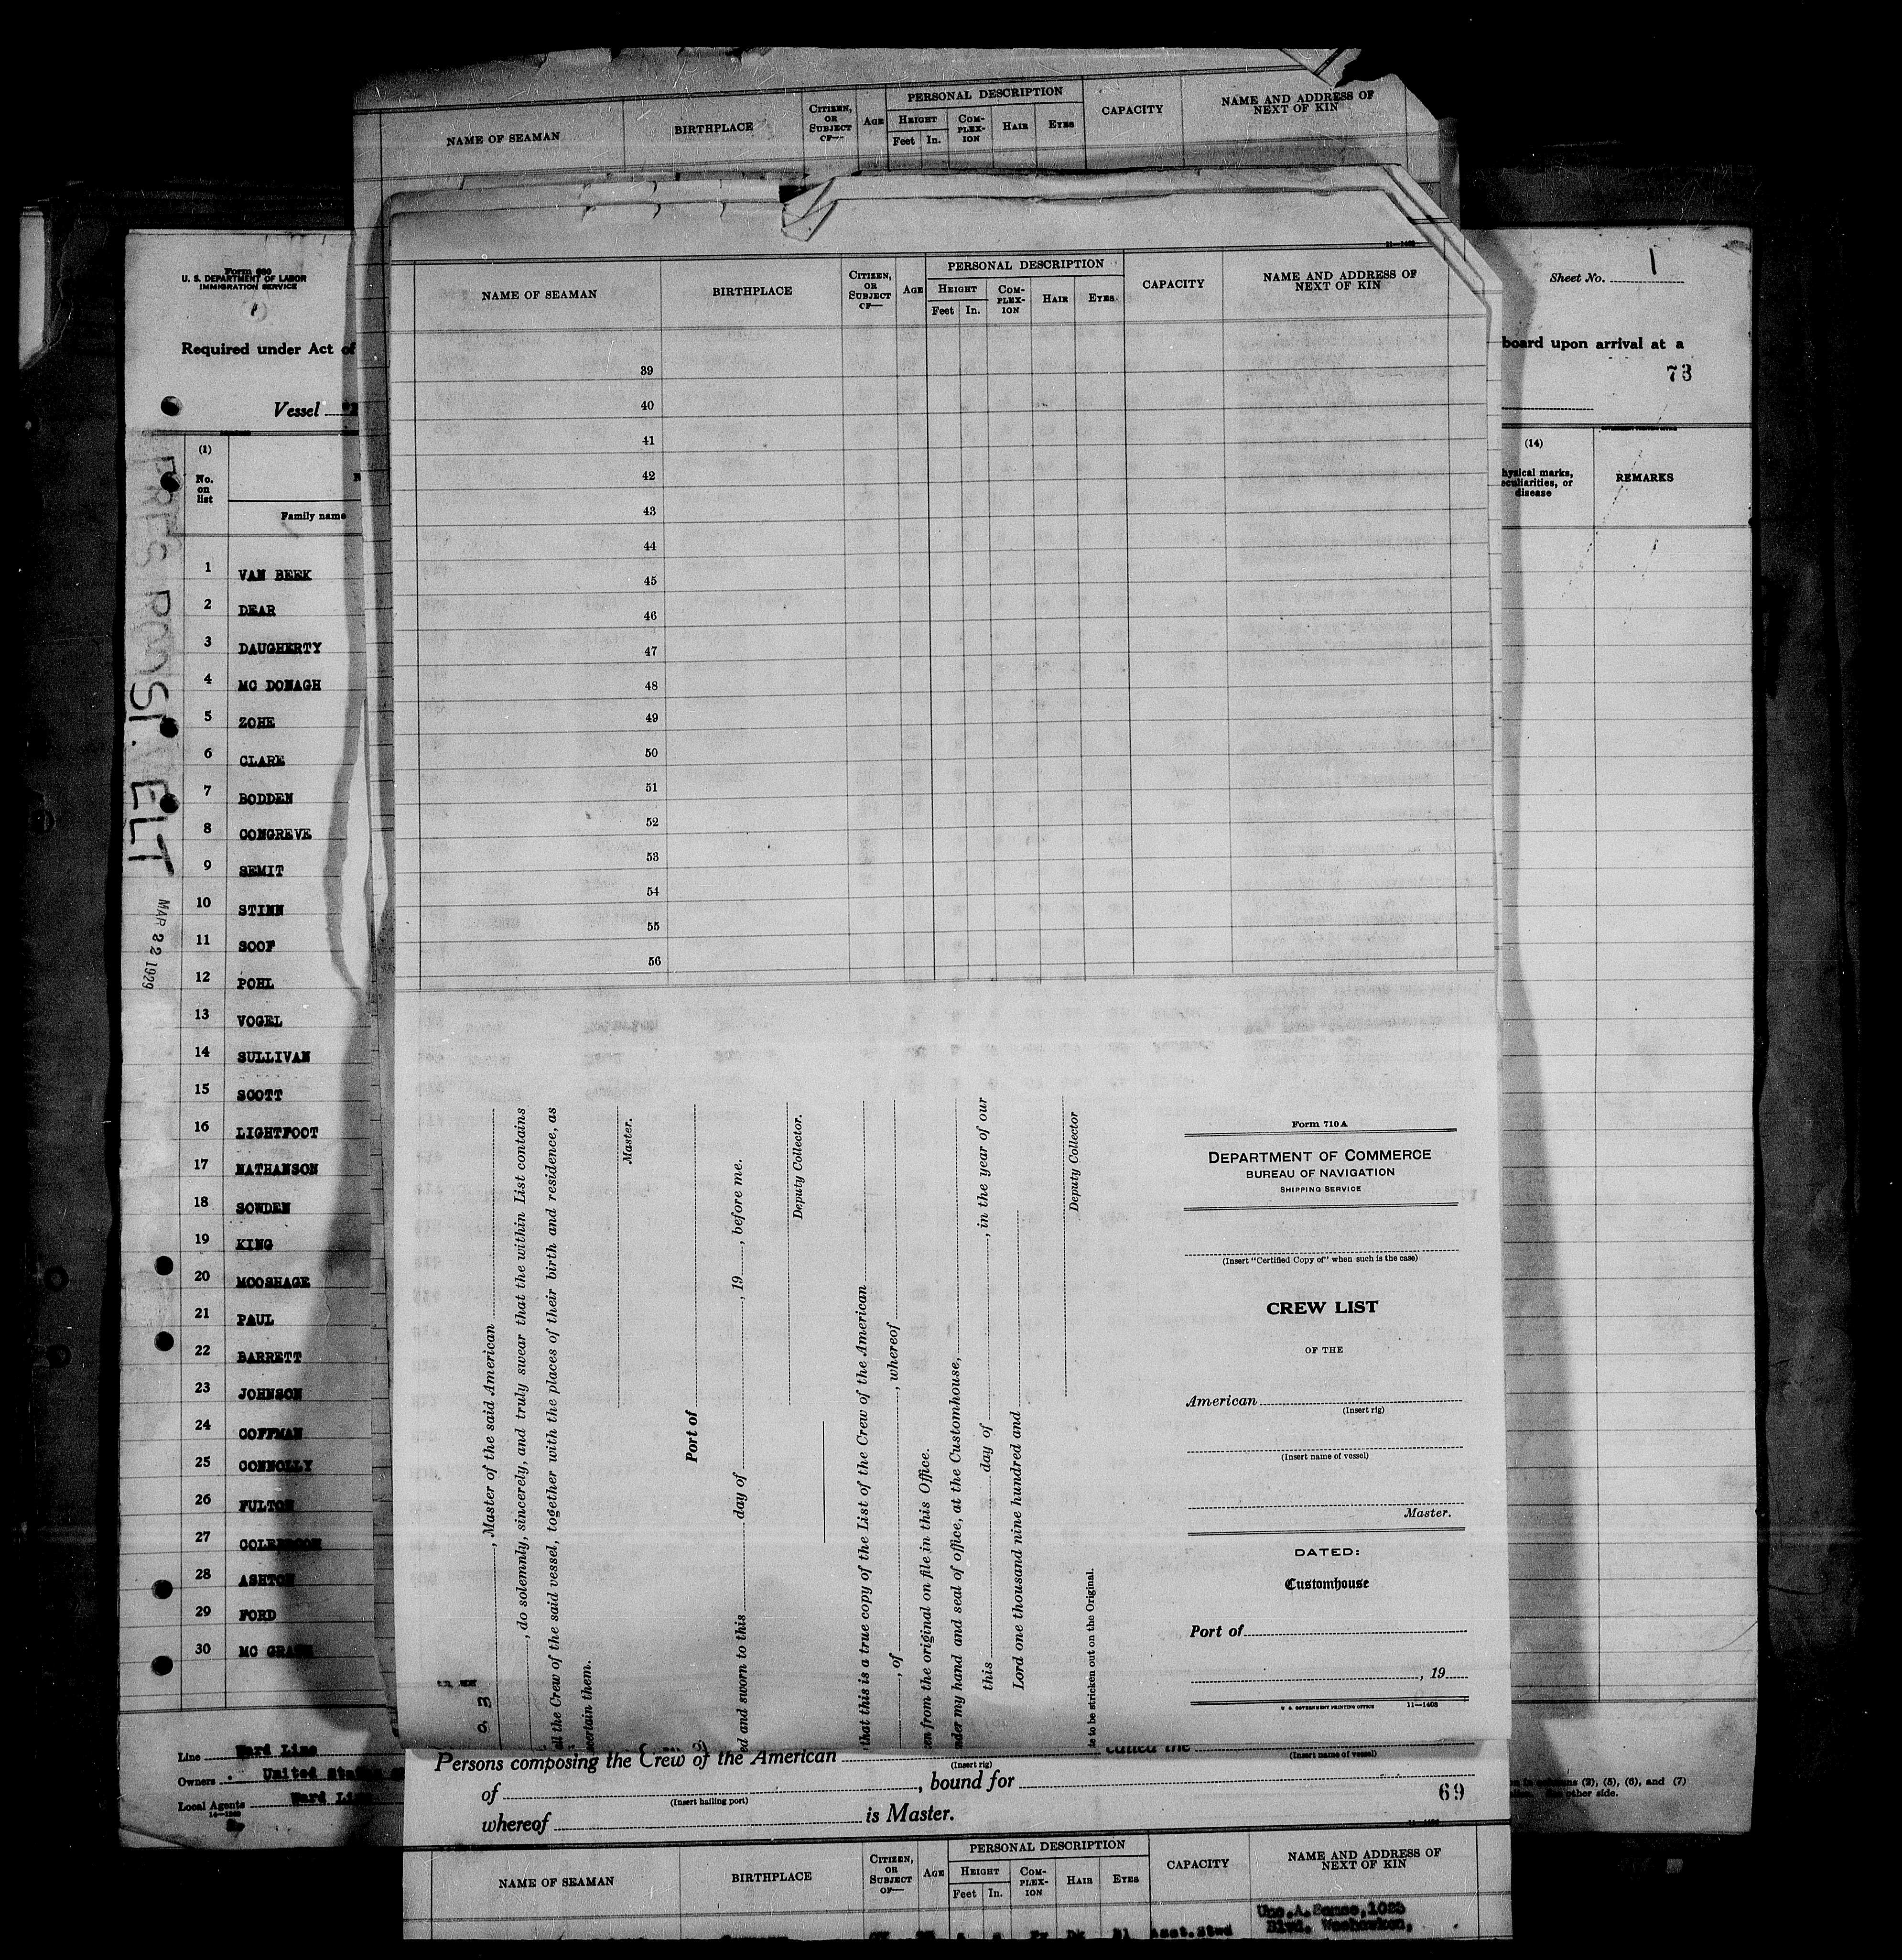 NAME OF SEAMAN
BIRTHPLACE
CITIZEN, OR SUBJECT OF—
AGE
PERSONAL DESCRIPTION
HEIGHT
Feet In.
COM-PLEX-ION
HAIR
EYES
CAPACITY
NAME AND ADDRESS OF NEXT OF KIN
Form 680
U. S. DEPARTMENT OF LABOR
IMMIGRATION SERVICE
Required under Act of
Vessel
(1)
No. on list
Family name
1 VAN BEEK
2 DEAR
3 DAUGHERTY
4 MC DONAGH
5 ZOHE
6 CLARE
7 BODDEN
8 CONGREVE
9 SEMIT
10 STINN
11 SOOF
12 POHL
13 VOGEL
14 SULLIVAN
15 SCOTT
16 LIGHTFOOT
17 NATHANSON
18 SOWDEN
19 KING
20 MOOSHAGE
21 PAUL
22 BARRETT
23 JOHNSON
24 COFFMAN
25 CONNOLLY
26 FULTON
27
28 ASHTON
29 FORD
30 MC
MAR 22 1929
Line Ward Line
Owners United States
Local Agents Ward Line
Sheet No. 1
board upon arrival at a
73
(14)
hysical marks,
eculiarities, or
disease
REMARKS
GOVERNMENT PRINTING OFFICE
columns (2), (5), (6), and (7)
other side.
11—1408
NAME OF SEAMAN
BIRTHPLACE
CITIZEN, OR SUBJECT OF—
AGE
PERSONAL DESCRIPTION
HEIGHT
Feet In.
COM-PLEX-ION
HAIR
EYES
CAPACITY
NAME AND ADDRESS OF NEXT OF KIN
39
40
41
42
43
44
45
46
47
48
49
50
51
52
53
54
55
56
, Master of the said American
, do solemnly, sincerely, and truly swear that the within List contains
all the Crew of the said vessel, together with the places of their birth and residence, as
certain them.
Master.
Port of
ed and sworn to this day of , 19 , before me.
Deputy Collector.
that this is a true copy of the List of the Crew of the American
, of , whereof
en from the original on file in this Office.
nder my hand and seal of office, at the Customhouse,
this day of , in the year of our
Lord one thousand nine hundred and
Deputy Collector
to be stricken out on the Original.
Form 710 A
DEPARTMENT OF COMMERCE
BUREAU OF NAVIGATION
SHIPPING SERVICE
(Insert "Certified Copy of" when such is the case)
CREW LIST
OF THE
American
(Insert rig)
(Insert name of vessel)
Master.
DATED:
Customhouse
Port of
, 19
U. S. GOVERNMENT PRINTING OFFICE 11—1408
Persons composing the Crew of the American called the
(Insert rig) (Insert name of vessel)
of , bound for
(Insert hailing port)
69
whereof is Master.
NAME OF SEAMAN
BIRTHPLACE
CITIZEN, OR SUBJECT OF—
AGE
PERSONAL DESCRIPTION
HEIGHT
Feet In.
COM-PLEX-ION
HAIR
EYES
CAPACITY
NAME AND ADDRESS OF NEXT OF KIN
Asst. Stwd
Blvd. Weehawken,